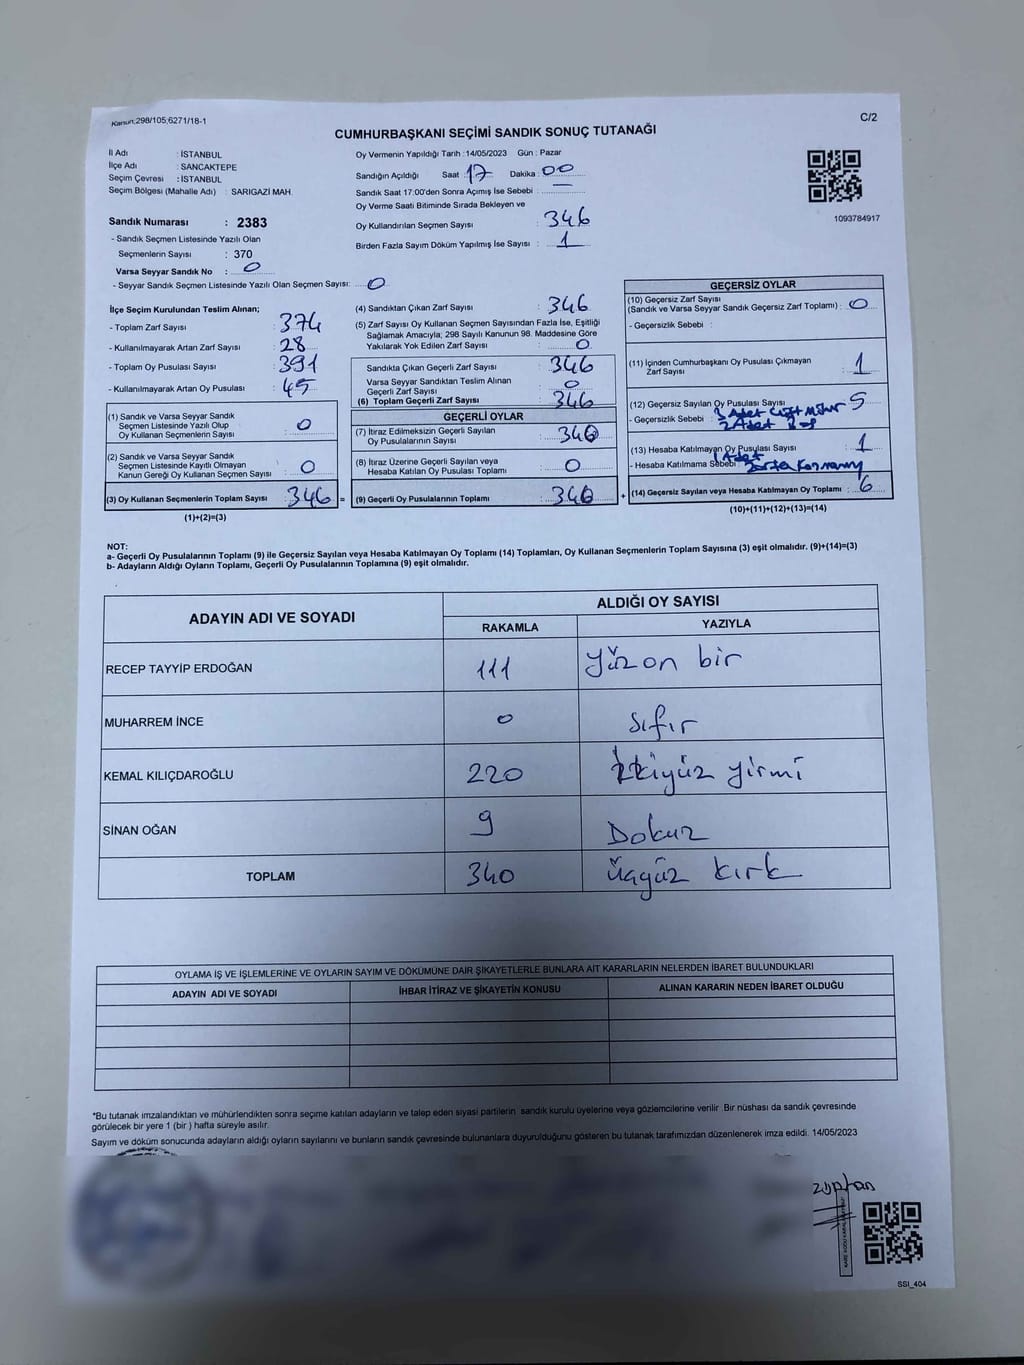 Kanun:298/105;6271/18-1
C/2
CUMHURBAŞKANI SEÇİMİ SANDIK SONUÇ TUTANAĞI
İl Adı : İSTANBUL
İlçe Adı : SANCAKTEPE
Seçim Çevresi : İSTANBUL
Seçim Bölgesi (Mahalle Adı) : SARIGAZİ MAH.
Sandık Numarası : 2383
- Sandık Seçmen Listesinde Yazılı Olan
Seçmenlerin Sayısı : 370
Varsa Seyyar Sandık No : 0
- Seyyar Sandık Seçmen Listesinde Yazılı Olan Seçmen Sayısı: 0
Oy Vermenin Yapıldığı Tarih :14/05/2023 Gün : Pazar
Sandığın Açıldığı Saat : 17 Dakika : 00
Sandık Saat 17:00'den Sonra Açımış İse Sebebi : —
Oy Verme Saati Bitiminde Sırada Bekleyen ve
Oy Kullandırılan Seçmen Sayısı : 346
Birden Fazla Sayım Döküm Yapılmış İse Sayısı : 1
1093784917
İlçe Seçim Kurulundan Teslim Alınan;
- Toplam Zarf Sayısı : 374
- Kullanılmayarak Artan Zarf Sayısı : 28
- Toplam Oy Pusulası Sayısı : 391
- Kullanılmayarak Artan Oy Pusulası : 45
(1) Sandık ve Varsa Seyyar Sandık
Seçmen Listesinde Yazılı Olup
Oy Kullanan Seçmenlerin Sayısı : 0
(2) Sandık ve Varsa Seyyar Sandık
Seçmen Listesinde Kayıtlı Olmayan
Kanun Gereği Oy Kullanan Seçmen Sayısı : 0
(3) Oy Kullanan Seçmenlerin Toplam Sayısı : 346 =
(1)+(2)=(3)
(4) Sandıktan Çıkan Zarf Sayısı : 346
(5) Zarf Sayısı Oy Kullanan Seçmen Sayısından Fazla İse, Eşitliği
Sağlamak Amacıyla; 298 Sayılı Kanunun 98. Maddesine Göre
Yakılarak Yok Edilen Zarf Sayısı : 0
Sandıkta Çıkan Geçerli Zarf Sayısı : 346
Varsa Seyyar Sandıktan Teslim Alınan
Geçerli Zarf Sayısı : 0
(6) Toplam Geçerli Zarf Sayısı : 346
GEÇERLİ OYLAR
(7) İtiraz Edilmeksizin Geçerli Sayılan
Oy Pusulalarının Sayısı : 340
(8) İtiraz Üzerine Geçerli Sayılan veya
Hesaba Katılan Oy Pusulası Toplamı : 0
(9) Geçerli Oy Pusulalarının Toplamı : 340 +
GEÇERSİZ OYLAR
(10) Geçersiz Zarf Sayısı
(Sandık ve Varsa Seyyar Sandık Geçersiz Zarf Toplamı) : 0
- Geçersizlik Sebebi :
(11) İçinden Cumhurbaşkanı Oy Pusulası Çıkmayan
Zarf Sayısı : 1
(12) Geçersiz Sayılan Oy Pusulası Sayısı : 5
- Geçersizlik Sebebi : 3 Adet Çift Mühür
2 Adet
(13) Hesaba Katılmayan Oy Pusulası Sayısı : 1
- Hesaba Katılmama Sebebi : 1 Adet
(14) Geçersiz Sayılan veya Hesaba Katılmayan Oy Toplamı : 6
(10)+(11)+(12)+(13)=(14)
NOT:
a- Geçerli Oy Pusulalarının Toplamı (9) ile Geçersiz Sayılan veya Hesaba Katılmayan Oy Toplamı (14) Toplamları, Oy Kullanan Seçmenlerin Toplam Sayısına (3) eşit olmalıdır. (9)+(14)=(3)
b- Adayların Aldığı Oyların Toplamı, Geçerli Oy Pusulalarının Toplamına (9) eşit olmalıdır.
ADAYIN ADI VE SOYADI ALDIĞI OY SAYISI
RAKAMLA YAZIYLA
RECEP TAYYİP ERDOĞAN 111 yüzon bir
MUHARREM İNCE 0 sıfır
KEMAL KILIÇDAROĞLU 220 ikiyüz yirmi
SİNAN OĞAN 9 Dokuz
TOPLAM 340 üçyüz kırk
OYLAMA İŞ VE İŞLEMLERİNE VE OYLARIN SAYIM VE DÖKÜMÜNE DAİR ŞİKAYETLERLE BUNLARA AİT KARARLARIN NELERDEN İBARET BULUNDUKLARI
ADAYIN ADI VE SOYADI İHBAR İTİRAZ VE ŞİKAYETİN KONUSU ALINAN KARARIN NEDEN İBARET OLDUĞU
*Bu tutanak imzalandıktan ve mühürlendikten sonra seçime katılan adayların ve talep eden siyasi partilerin sandık kurulu üyelerine veya gözlemcilerine verilir .Bir nüshası da sandık çevresinde
görülecek bir yere 1 (bir ) hafta süreyle asılır.
Sayım ve döküm sonucunda adayların aldığı oyların sayılarını ve bunların sandık çevresinde bulunanlara duyurulduğunu gösteren bu tutanak tarafımızdan düzenlenerek imza edildi. 14/05/2023
SSİ_404